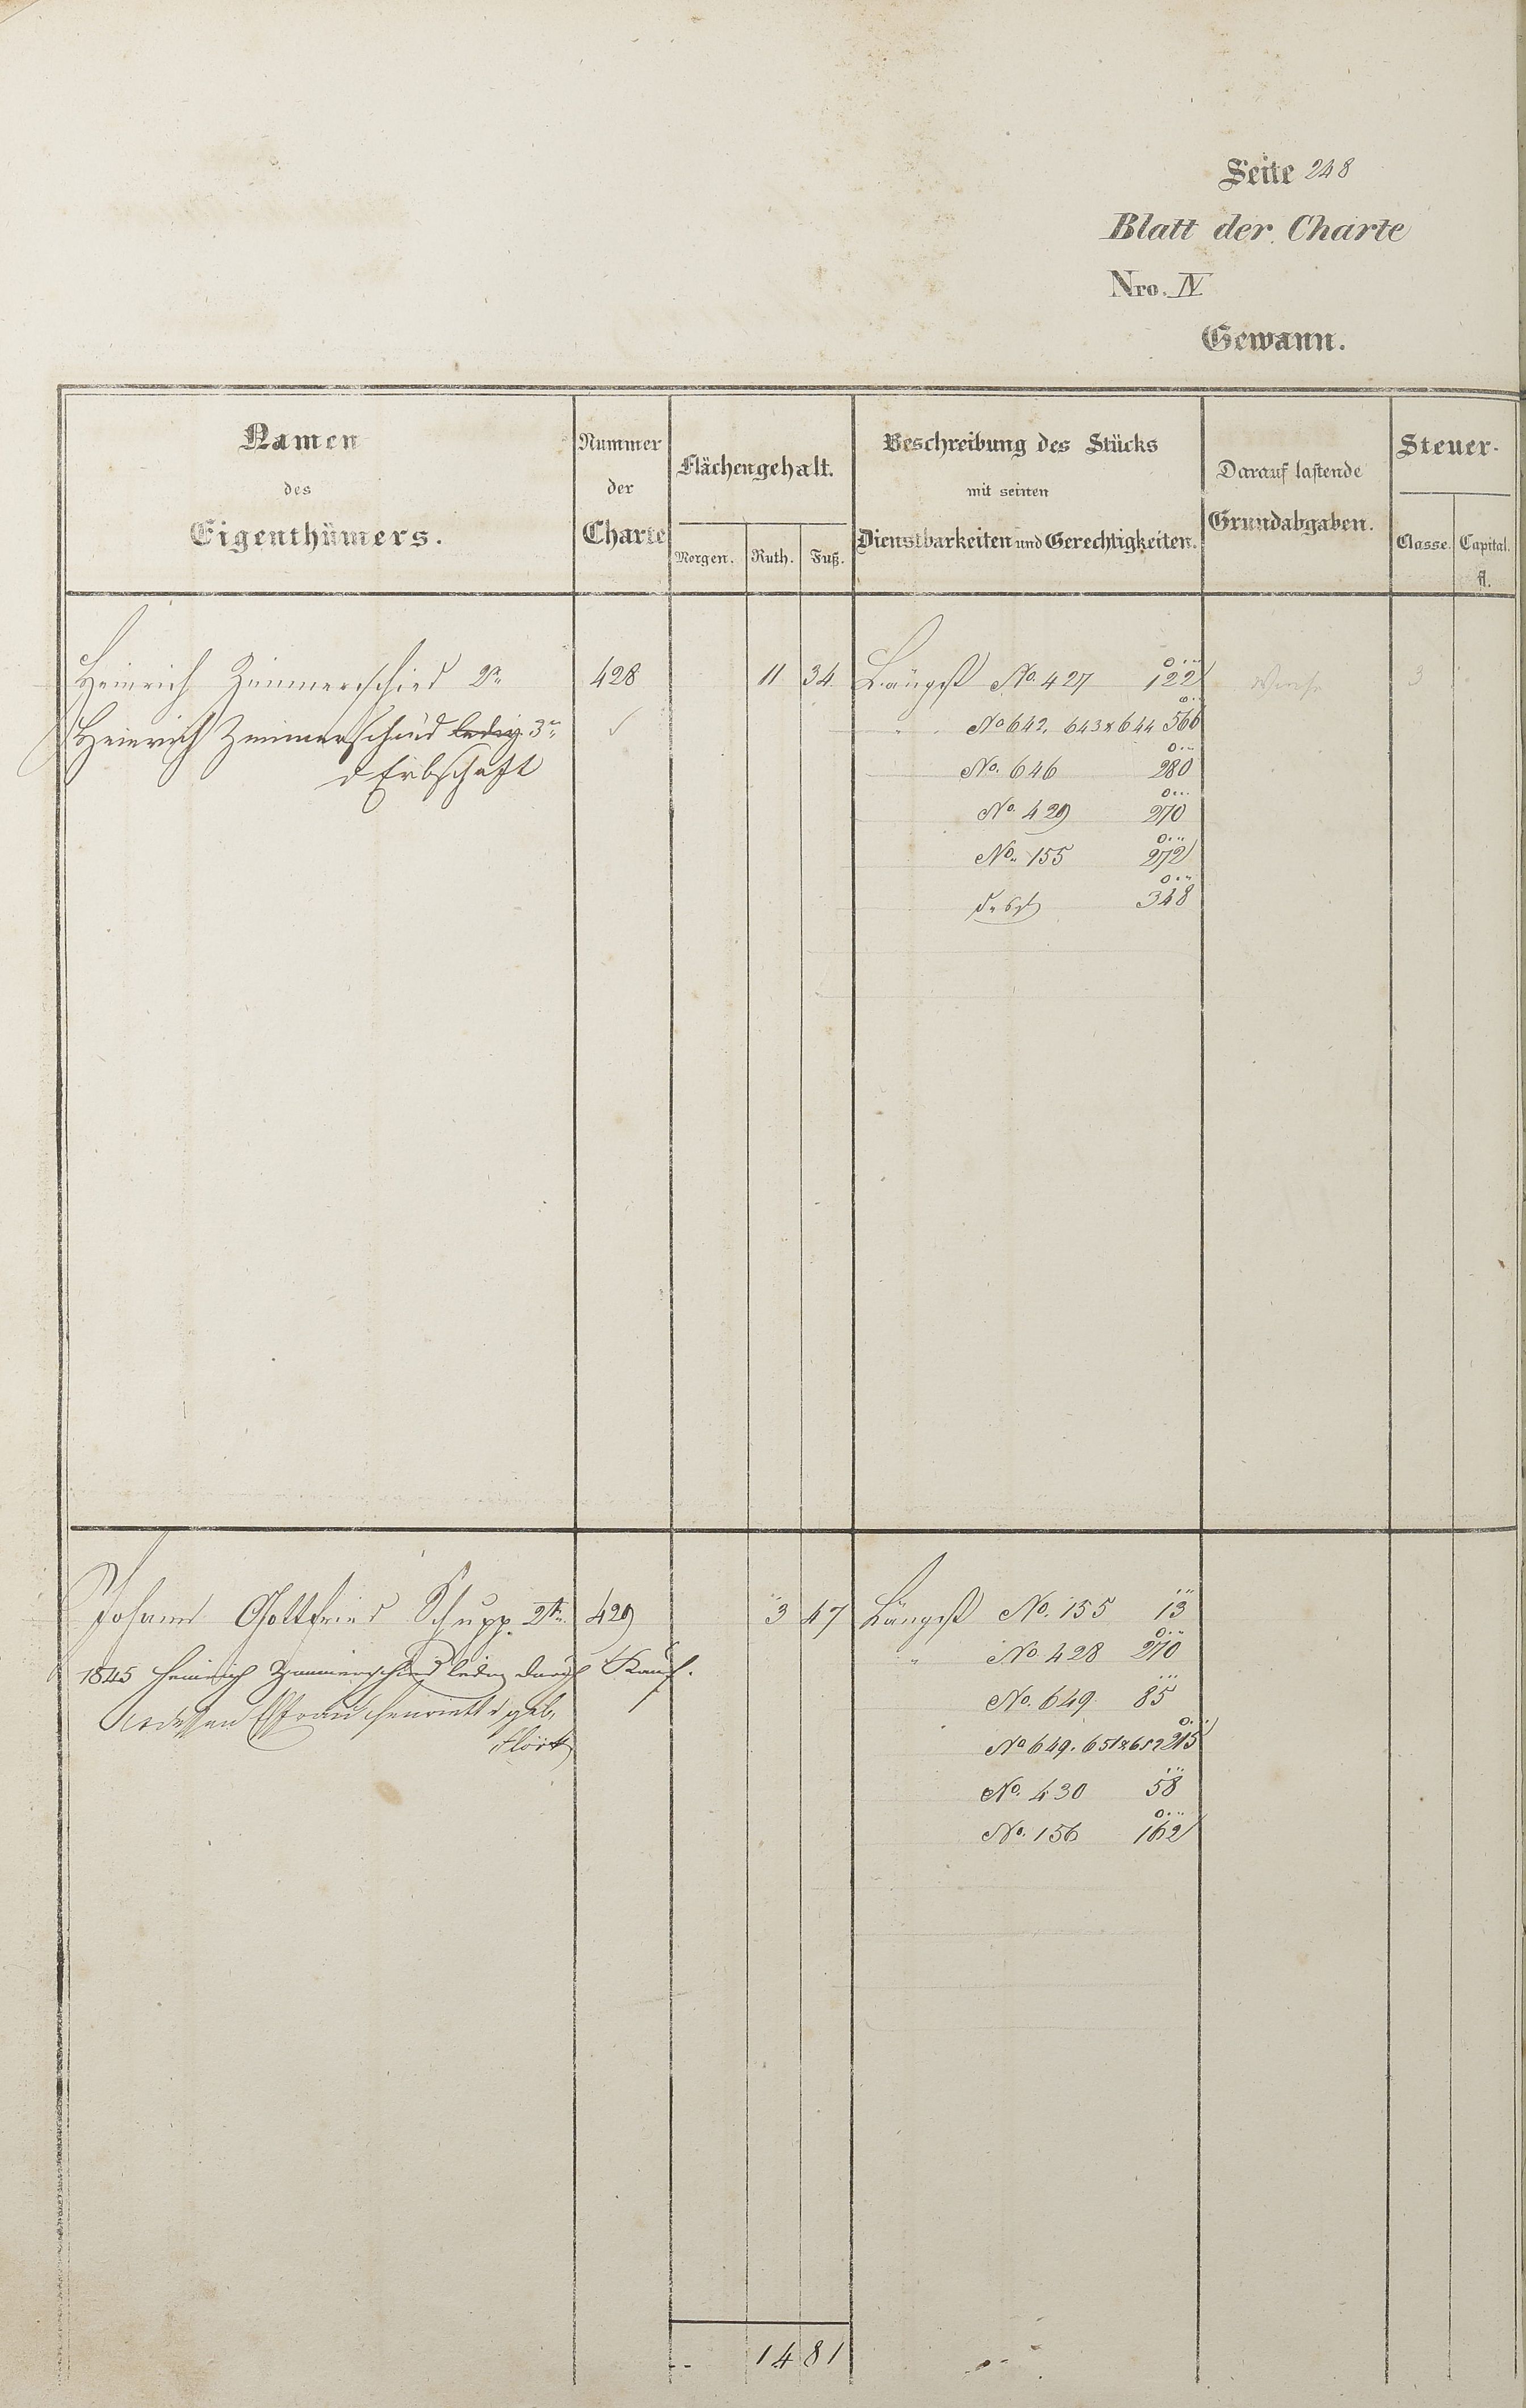 Seite 248
Blatt der Charte
Nro. IV
Gewann.
Namen des Eigenthümers.
Nummer der Charte
Flächengehalt.
Morgen. Ruth. Fuß.
Beschreibung des Stücks mit seinen Dienstbarkeiten und Gerechtigkeiten.
Darauf lastende Grundabgaben.
Steuer-
Classe. Capital.
fl.
Heinrich Zimmerschied 2r 428 11 34 Längst No. 427 122 3
Heinrich Zimmerschied ledig 3r " No 642. 643 & 644 566
d Erbschaft No. 646 280
No. 429 270
No. 155 272
348
Johann Gottfried Schupp 2tr 429 3 47 Längst No. 155 13
1845 Heinrich Zimmerschied ledig durch Kauf. " No. 428 270
dessen Ehefrau Henriette geb. No. 649 85
No 649. 651 & 652 215
No. 430 58
No. 156 162
14 81